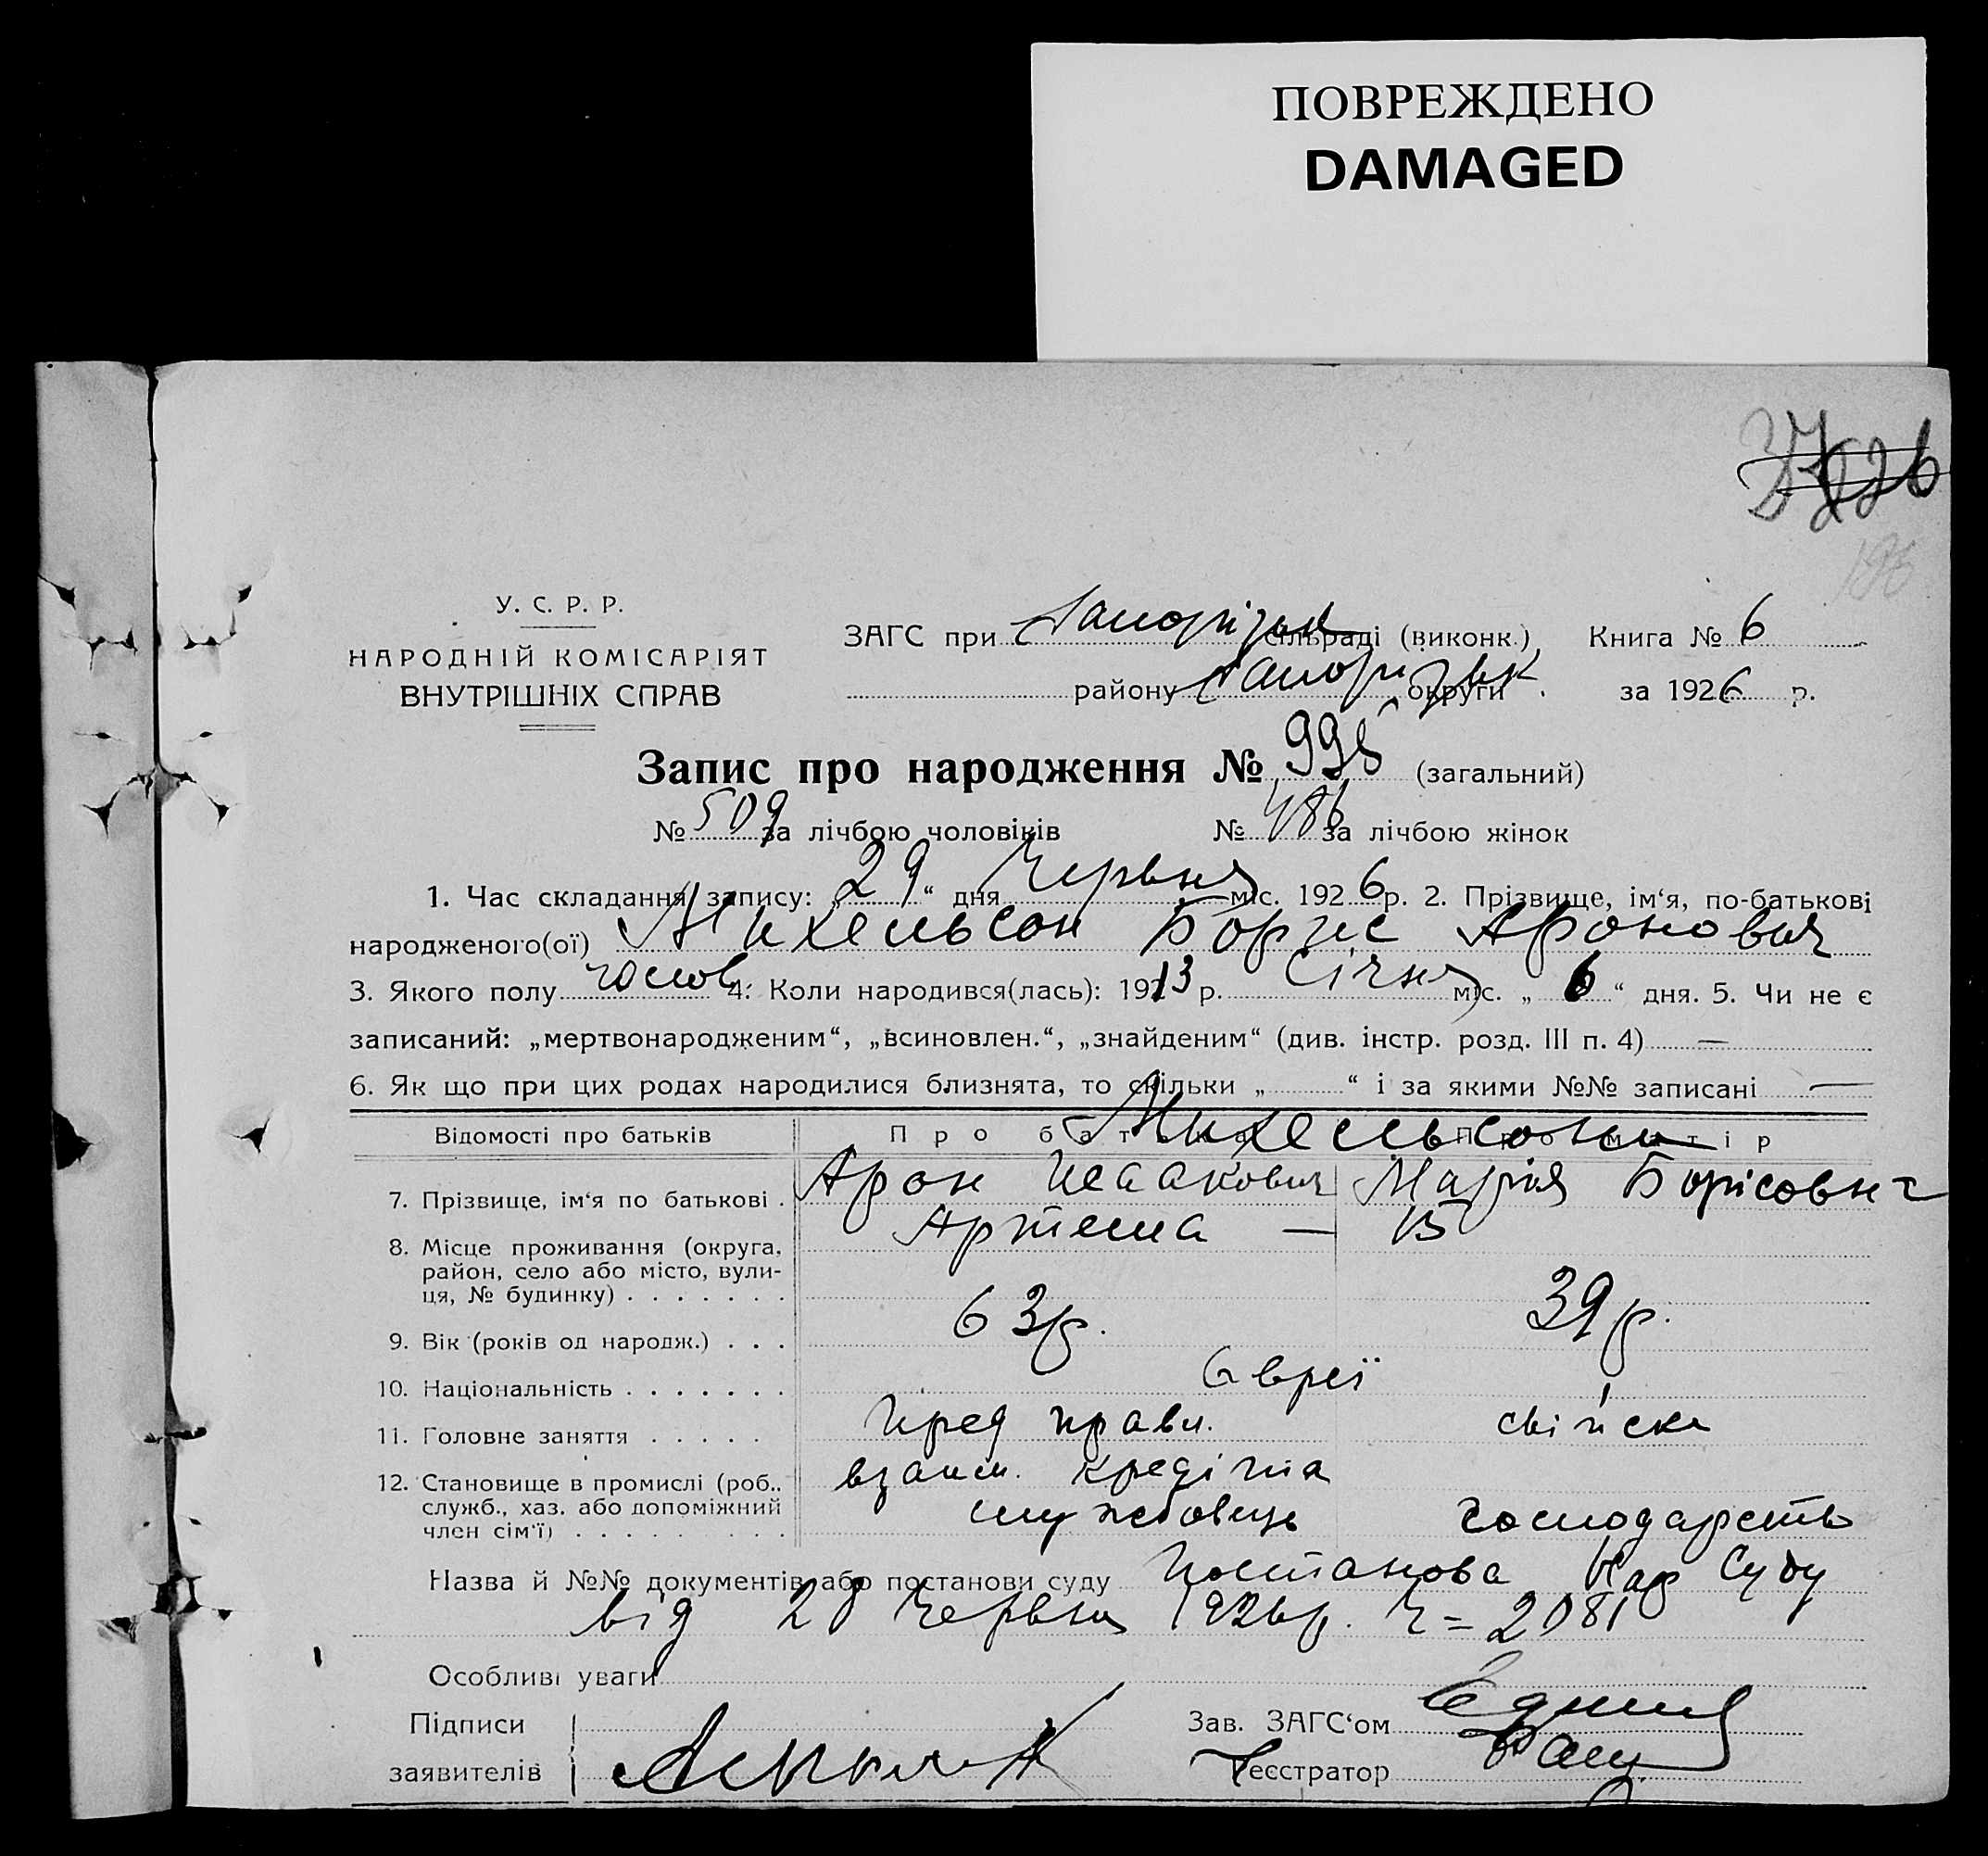 ПОВРЕЖДЕНО
DAMAGED
226
У. С. Р. Р.
НАРОДНІЙ КОМІСАРІЯТ
ВНУТРІШНІХ СПРАВ
ЗАГС при Запорізьк сільраді (виконк.) Книга № 6
району Запорізьк округи за 1926 р.
Запис про народження № 995 (загальний)
№ 509 за лічбою чоловіків № 486 за лічбою жінок
1. Час складання запису: „29“ дня Червня міс. 1926 р. 2. Прізвище, ім‘я, по-батькові
народженого(ої) Михельсон Борис Аронович
3. Якого полу чолов. 4. Коли народився(лась): 1913 р. Січня міс. „6“ дня. 5. Чи не є
записаний: „мертвонародженим“, „всиновлен.“, „знайденим“ (див. інстр. розд. III п. 4) —
6. Як що при цих родах народилися близнята, то скільки „ “ і за якими №№ записані —
Відомості про батьків Про батька Про матір
Михельсони
7. Прізвище, ім‘я по батькові . Арон Исаакович Марія Борісовна
8. Місце проживання (округа, район, село або місто, вулиця, № будинку) . . . . . . . Артема — 15
9. Вік (років од народж.) . . . 63р. 39р.
10. Національність . . . . . . . Євреї
11. Головне заняття . . . . . Пред правл. свійське
12. Становище в промислі (роб., взаим. кредіта
служб., хаз. або допоміжний службовець господарсть
член сім‘ї) . . . . . . . . .
Назва й №№ документів або постанови суду Постанова Нар Суду
від 28 Червня 1926р. Ч = 2081
Особливі уваги
Підписи Зав. ЗАГС‘ом
заявителів Реєстратор